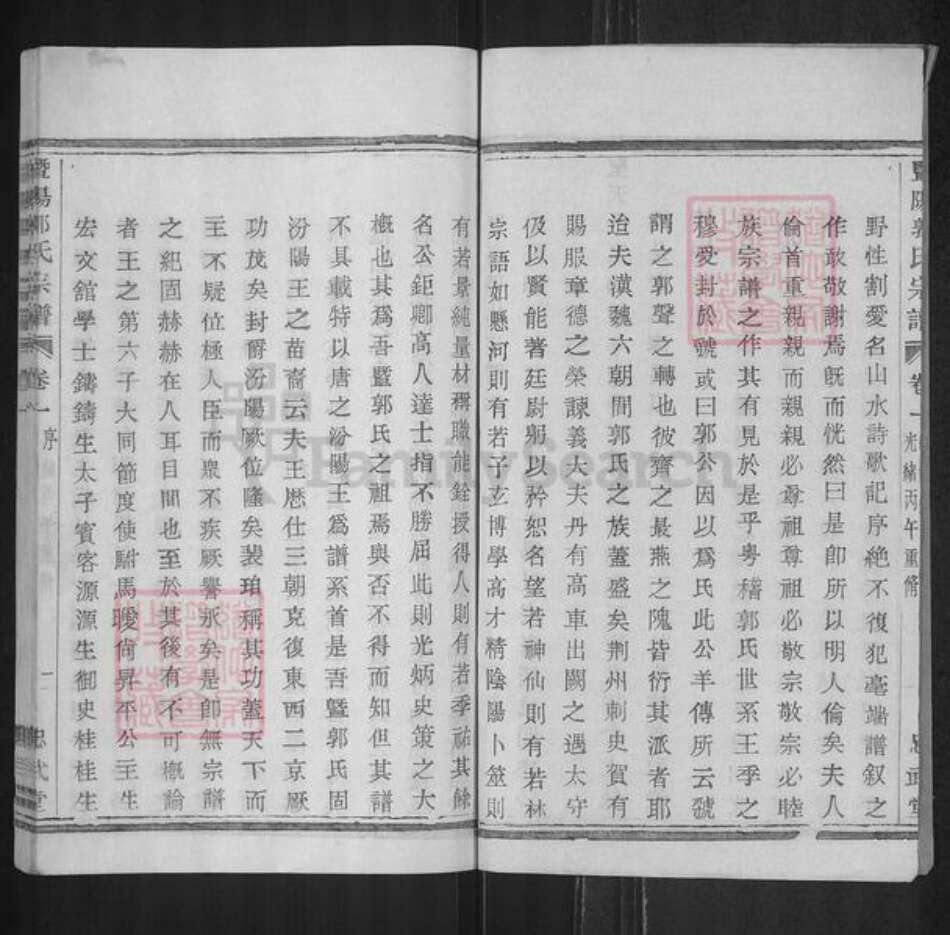 暨陽郭氏宗譜 卷一 光緒丙午重脩 忠武堂
野性割愛名山水詩歌記序絶不復犯毫端譜叙之
作敢敬謝焉旣而恍然曰是卽所以明人倫矣夫人
倫首重親親而親親必尊祖尊祖必敬宗敬宗必睦
族宗譜之作其有見於是乎粤稽郭氏世系王季之
穆受封於虢或曰郭公因以爲氏此公羊傳所云虢
謂之郭聲之轉也彼齊之最燕之隗皆衍其派者耶
迨夫漢魏六朝間郭氏之族蓋盛矣荆州刺史賀有
賜服章德之榮諫義大夫丹有高車出關之遇太守
伋以賢能著廷尉躬以矜恕名望若神仙則有若林
宗語如懸河則有若子玄博學高才精陰陽卜筮則
有若景純量材稱職能銓授得人則有若季祐其餘
名公鉅卿高人達士指不勝屈此則光炳史策之大
槪也其爲吾暨郭氏之祖焉與否不得而知但其譜
不具載特以唐之汾陽王爲譜系首是吾暨郭氏固
汾陽王之苗裔云夫王厯仕三朝克復東西二京厥
功茂矣封爵汾陽厥位隆矣裴珀稱其功蓋天下而
主不疑位極人臣而衆不疾厥譽永矣是卽無宗譜
之紀固赫赫在人耳目間也至於其後有不可槪論
者王之第六子大同節度使駙馬曖尙昇平公主生
宏文舘學士鑄鑄生太子賓客源源生御史桂桂生
暨陽郭氏宗譜 卷一 序 一 忠武堂
FamilySearch